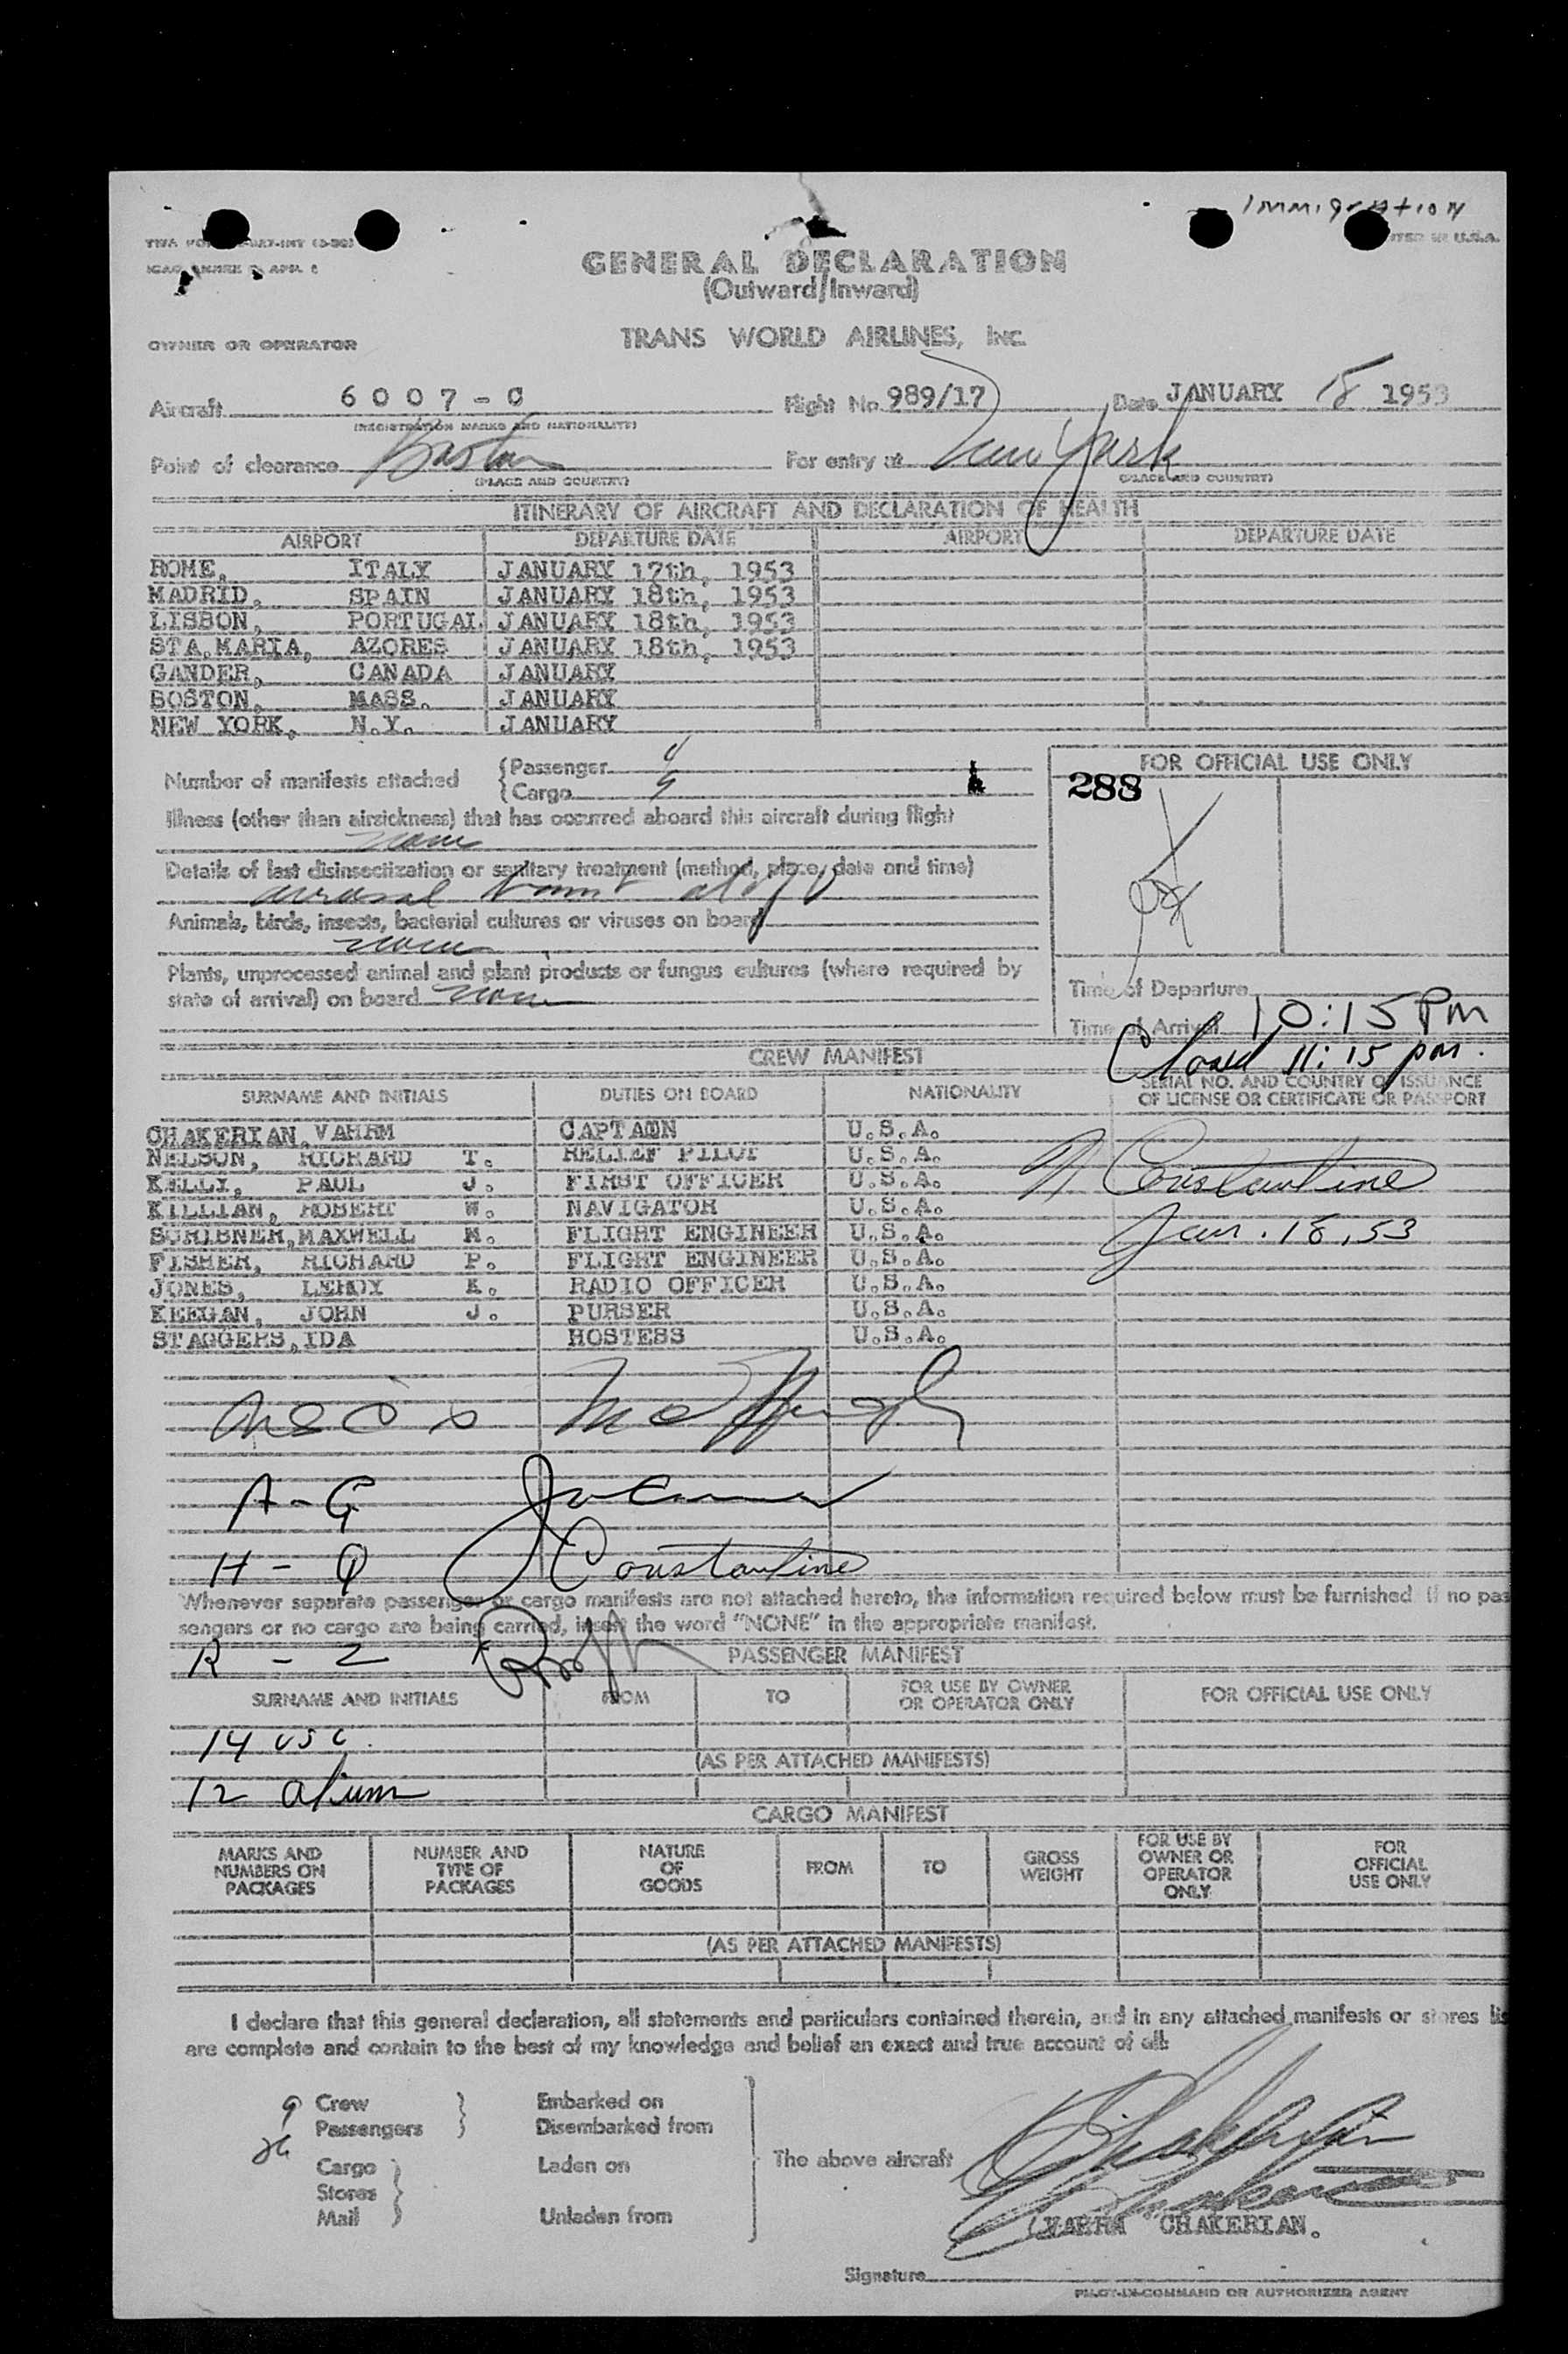 Immigration
GENERAL DECLARATION
(Outward/Inward)
TRANS WORLD AIRLINES, Inc.
OWNER OR OPERATOR
Aircraft 6007-C Flight No. 989/17 Date JANUARY 18 1953
(REGISTRATION MARKS AND NATIONALITY)
Point of clearance Boston For entry at New York
(PLACE AND COUNTRY) (PLACE AND COUNTRY)
ITINERARY OF AIRCRAFT AND DECLARATION OF HEALTH
AIRPORT DEPARTURE DATE AIRPORT DEPARTURE DATE
ROME, ITALY JANUARY 17th, 1953
MADRID, SPAIN JANUARY 18th, 1953
LISBON, PORTUGAL JANUARY 18th, 1953
STA.MARIA, AZORES JANUARY 18th, 1953
GANDER, CANADA JANUARY
BOSTON, MASS. JANUARY
NEW YORK, N.Y. JANUARY
Number of manifests attached
Passenger
Cargo
FOR OFFICIAL USE ONLY
288
Illness (other than airsickness) that has occurred aboard this aircraft during flight
none
Details of last disinsectization or sanitary treatment (method, place, date and time)
aerosol
Animals, birds, insects, bacterial cultures or viruses on board
none
Plants, unprocessed animal and plant products or fungus cultures (where required by
state of arrival) on board none
Time of Departure
Time of Arrival 10:15 Pm
Closed 11:15 pm.
CREW MANIFEST
SURNAME AND INITIALS DUTIES ON BOARD NATIONALITY SERIAL NO. AND COUNTRY OF ISSUANCE
OF LICENSE OR CERTIFICATE OR PASSPORT
CHAKERIAN, VAHRM CAPTAIN U.S.A.
NELSON, RICHARD T. RELIEF PILOT U.S.A.
KELLY, PAUL J. FIRST OFFICER U.S.A. Constantine
KILLIAN, ROBERT W. NAVIGATOR U.S.A.
SCRIBNER, MAXWELL M. FLIGHT ENGINEER U.S.A. Jan. 18, 53
FISHER, RICHARD P. FLIGHT ENGINEER U.S.A.
JONES, LEROY K. RADIO OFFICER U.S.A.
KEEGAN, JOHN J. PURSER U.S.A.
STAGGERS, IDA HOSTESS U.S.A.
A - G
H - Q Constantine
Whenever separate passenger or cargo manifests are not attached hereto, the information required below must be furnished. If no pas
sengers or no cargo are being carried, insert the word "NONE" in the appropriate manifest.
R - Z
PASSENGER MANIFEST
SURNAME AND INITIALS FROM TO FOR USE BY OWNER
OR OPERATOR ONLY FOR OFFICIAL USE ONLY
14 USC.
(AS PER ATTACHED MANIFESTS)
12 aliens
CARGO MANIFEST
MARKS AND
NUMBERS ON
PACKAGES NUMBER AND
TYPE OF
PACKAGES NATURE
OF
GOODS FROM TO GROSS
WEIGHT FOR USE BY
OWNER OR
OPERATOR
ONLY FOR
OFFICIAL
USE ONLY
(AS PER ATTACHED MANIFESTS)
I declare that this general declaration, all statements and particulars contained therein, and in any attached manifests or stores lis
are complete and contain to the best of my knowledge and belief an exact and true account of all:
9 Crew Embarked on
26 Passengers Disembarked from
Cargo Laden on The above aircraft
Stores
Mail Unladen from
(VAHRM CHAKERIAN.
Signature
PILOT-IN-COMMAND OR AUTHORIZED AGENT